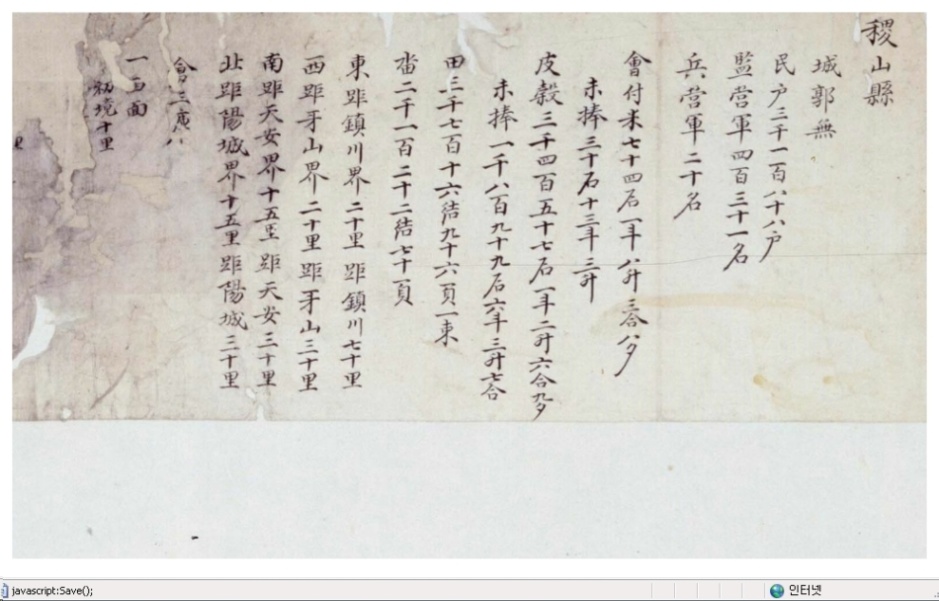 稷山縣
城郭無
民户三千一百八十八户
監营軍四百三十一名
兵营軍二十名
會付米七十四石一斗八升三合八夕
未捧三十石十三斗三升
皮穀三千四百五十七石一斗二升六合九夕
未捧一千八百九十九石六斗三升七合
田三千七百十六結九十六負一束
畓二千一百二十二結七十負
東距鎮川界二十里 距鎮川七十里
西距牙山界二十里 距牙山三十里
南距天安界十五里 距天安三十里
北距陽城界十五里 距陽城三十里
一 面
境十里
里
javascript:Save();
인터넷